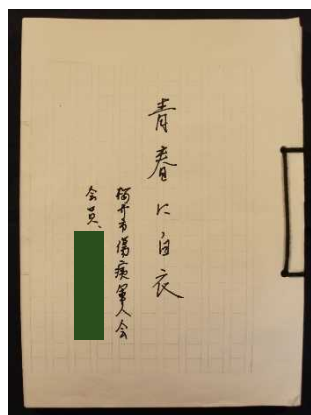 青春に白衣
福井市傷痍軍人会
会員